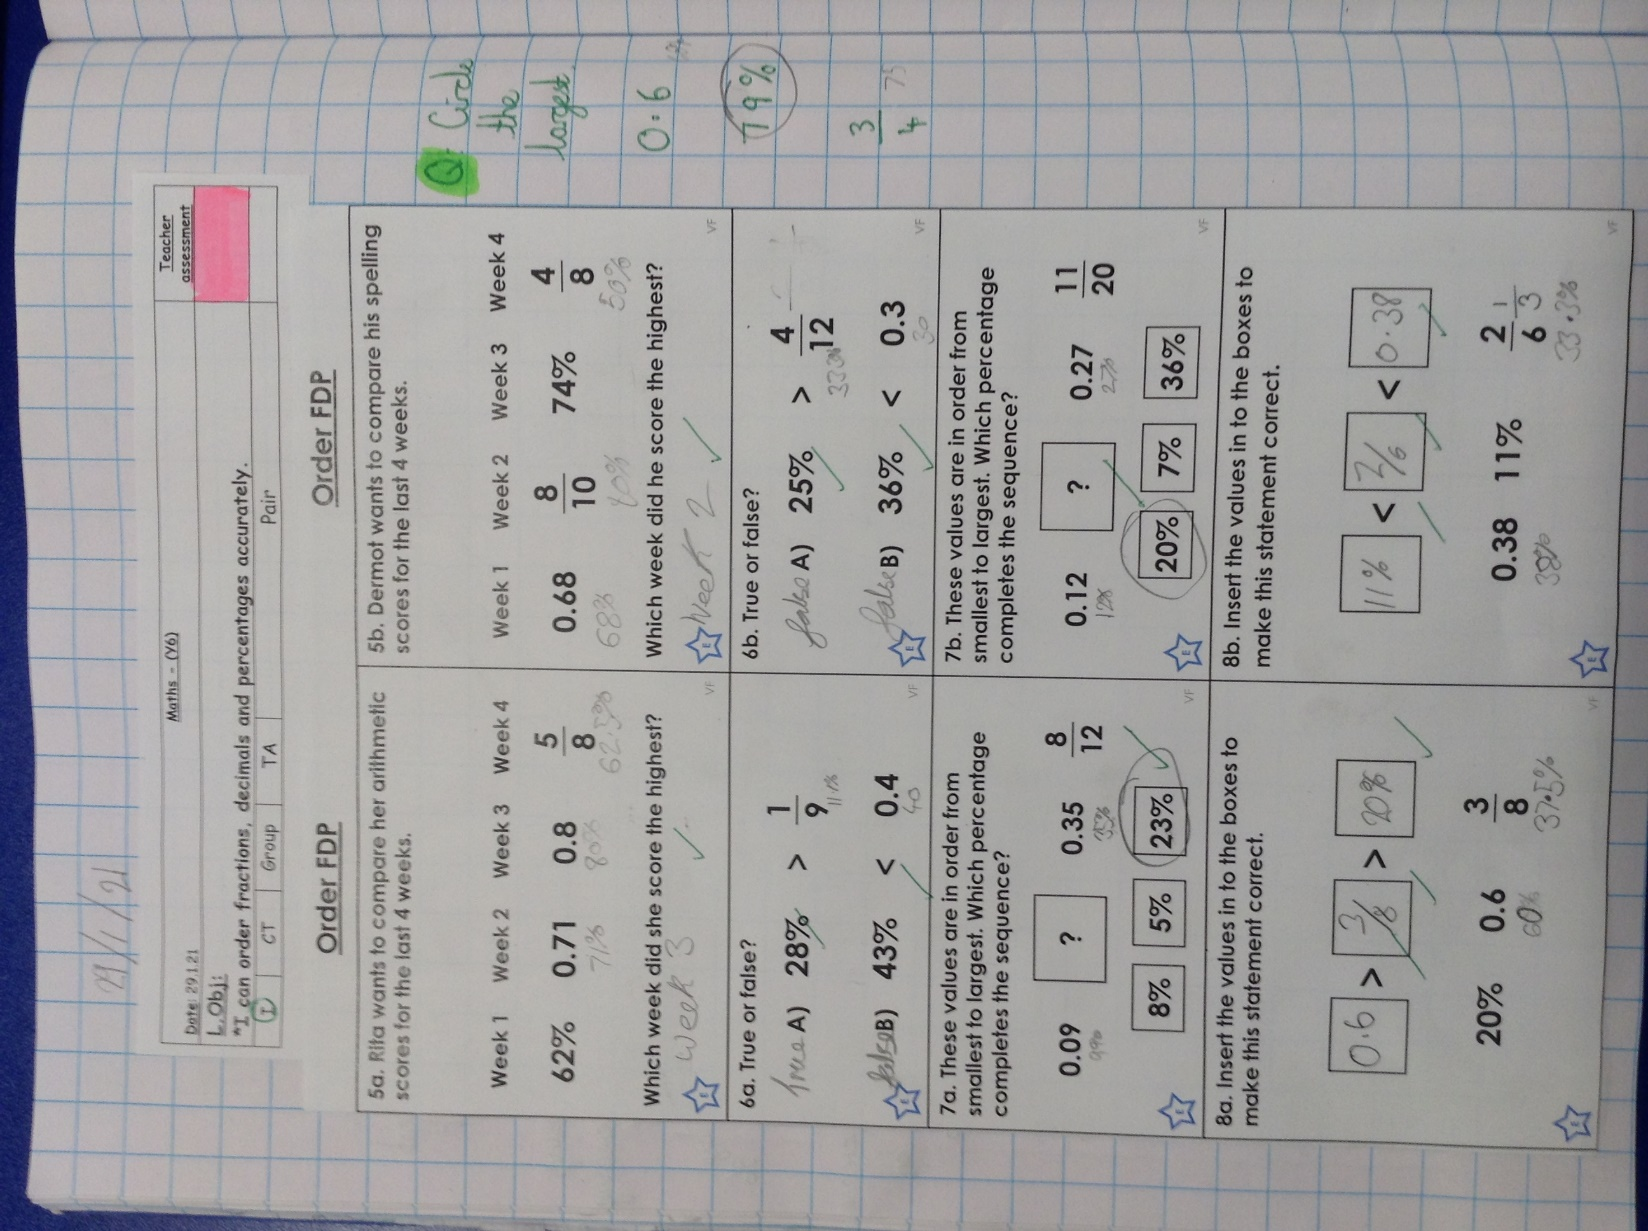 29/1/21
Maths - (Y6)
Teacher assessment
Date: 29.1.21
L.Obj:
*I can order fractions, decimals and percentages accurately.
I CT Group TA Pair
Order FDP
5a. Rita wants to compare her arithmetic
scores for the last 4 weeks.
Week 1 Week 2 Week 3 Week 4
62% 0.71 0.8 5/8
71% 80% 62.5%
Which week did she score the highest?
Week 3
VF
6a. True or false?
true A) 28% > 1/9
11%
false B) 43% < 0.4
40
VF
7a. These values are in order from
smallest to largest. Which percentage
completes the sequence?
0.09 ? 0.35 8/12
9% 35%
8% 5% 23%
VF
8a. Insert the values in to the boxes to
make this statement correct.
0.6 > 3/8 > 20%
20% 0.6 3/8
60% 37.5%
VF
Order FDP
5b. Dermot wants to compare his spelling
scores for the last 4 weeks.
Week 1 Week 2 Week 3 Week 4
0.68 8/10 74% 4/8
68% 50%
Which week did he score the highest?
Week 2
VF
6b. True or false?
false A) 25% > 4/12
false B) 36% < 0.3
30
VF
7b. These values are in order from
smallest to largest. Which percentage
completes the sequence?
0.12 ? 0.27 11/20
12% 27%
20% 7% 36%
VF
8b. Insert the values in to the boxes to
make this statement correct.
11% < 2/6 < 0.38
0.38 11% 2/6 1/3
38% 33.3%
VF
Q: Circle
the
largest.
0.6
79%
3/4 75